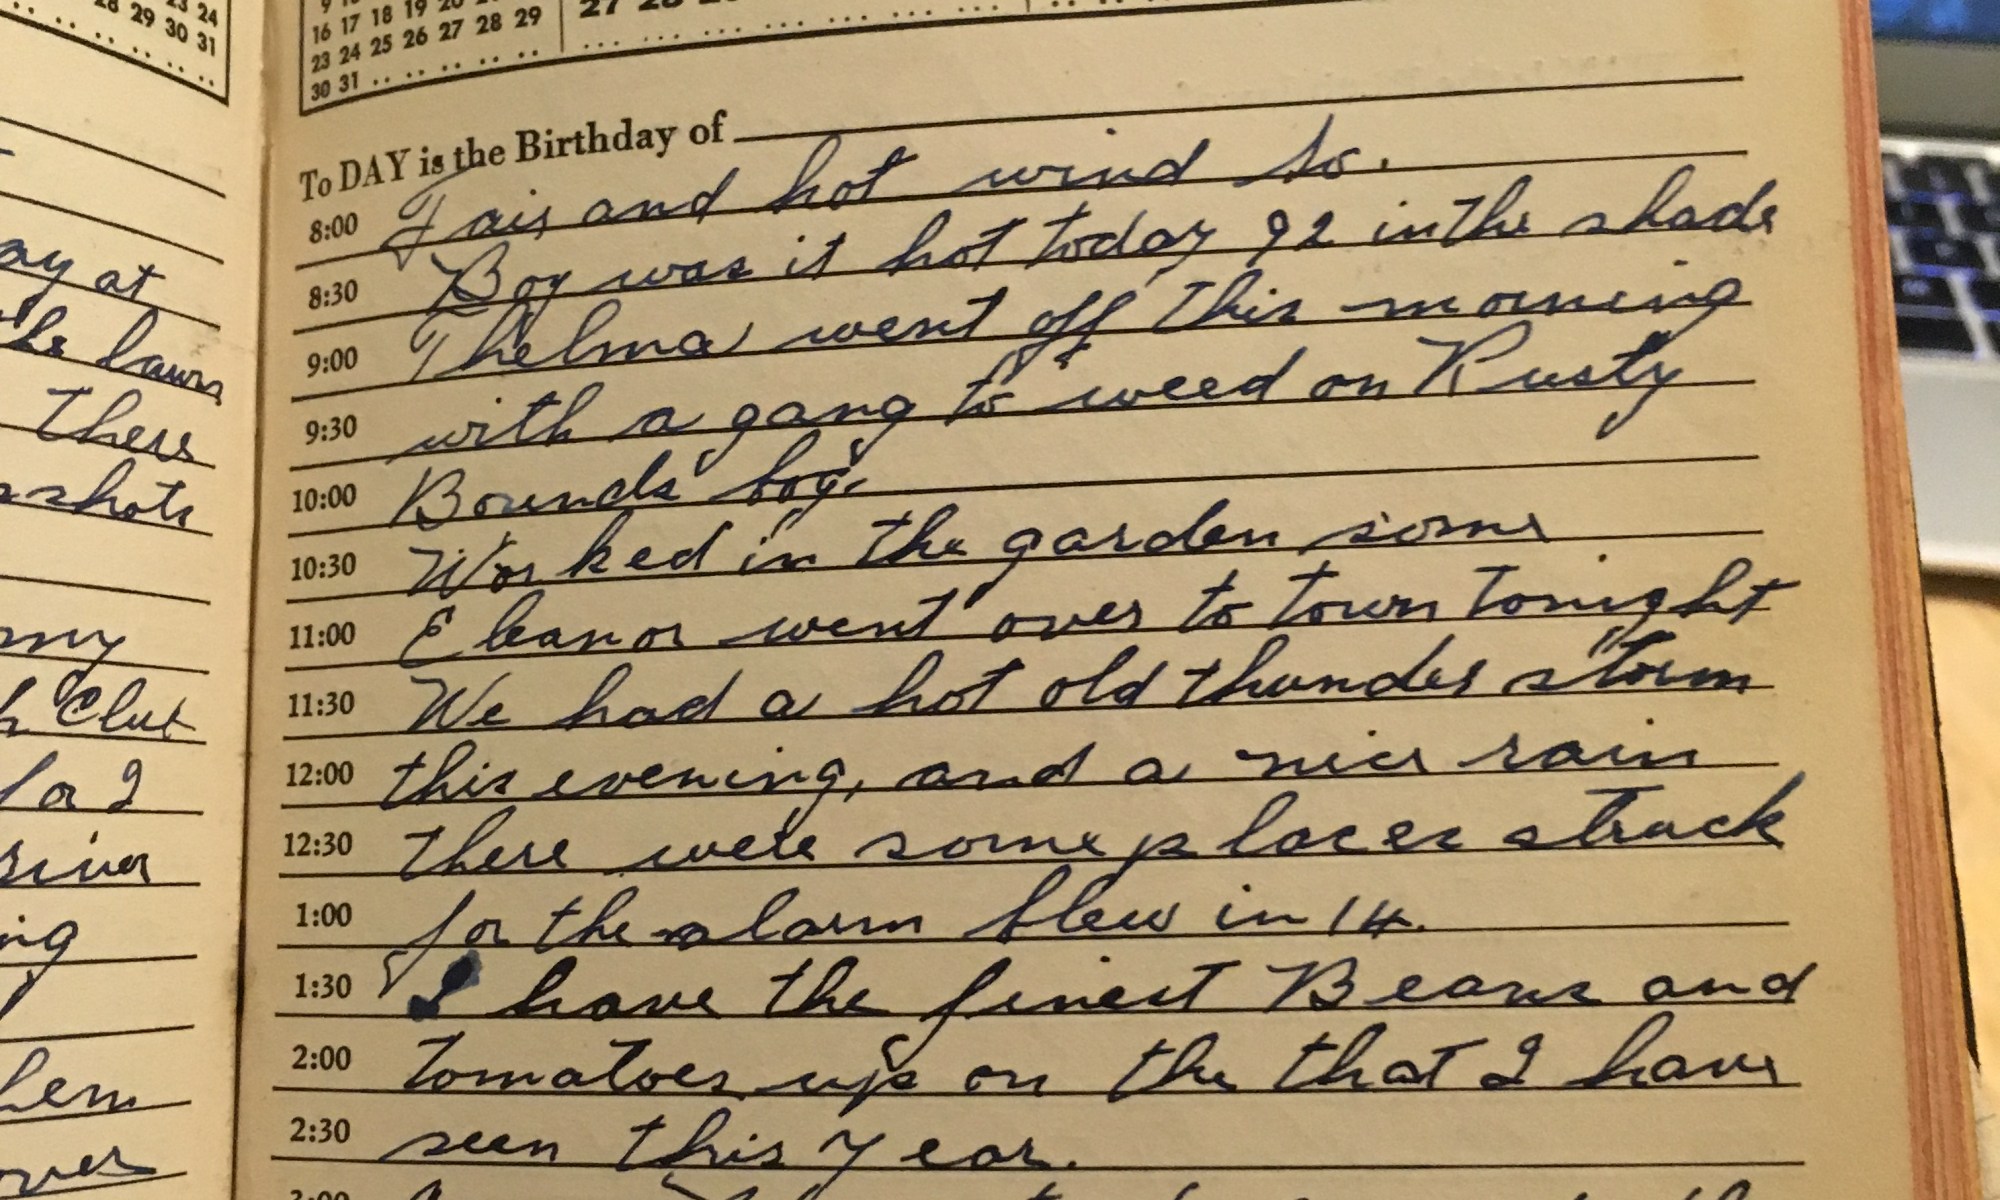 23 24
28 29 30 31
16 17 18 19 20
23 24 25 26 27 28 29
30 31
27 28
To DAY is the Birthday of
8:00 Fair and hot wind So.
8:30 Boy was it hot today 92 in the shade
9:00 Thelma went off this morning
9:30 with a gang to weed on Rusty
10:00 Bounds' bog.
10:30 Worked in the garden some
11:00 Eleanor went over to town tonight
11:30 We had a hot old thunder storm
12:00 this evening, and a nice rain
12:30 there were some places struck
1:00 for the alarm blew in 14.
1:30 I have the finest Beans and
2:00 tomatoes up on the that I have
2:30 seen this year.
3:00
ay at
the lawn
there
shots
my
Club
for 2
river
ing
hem
over